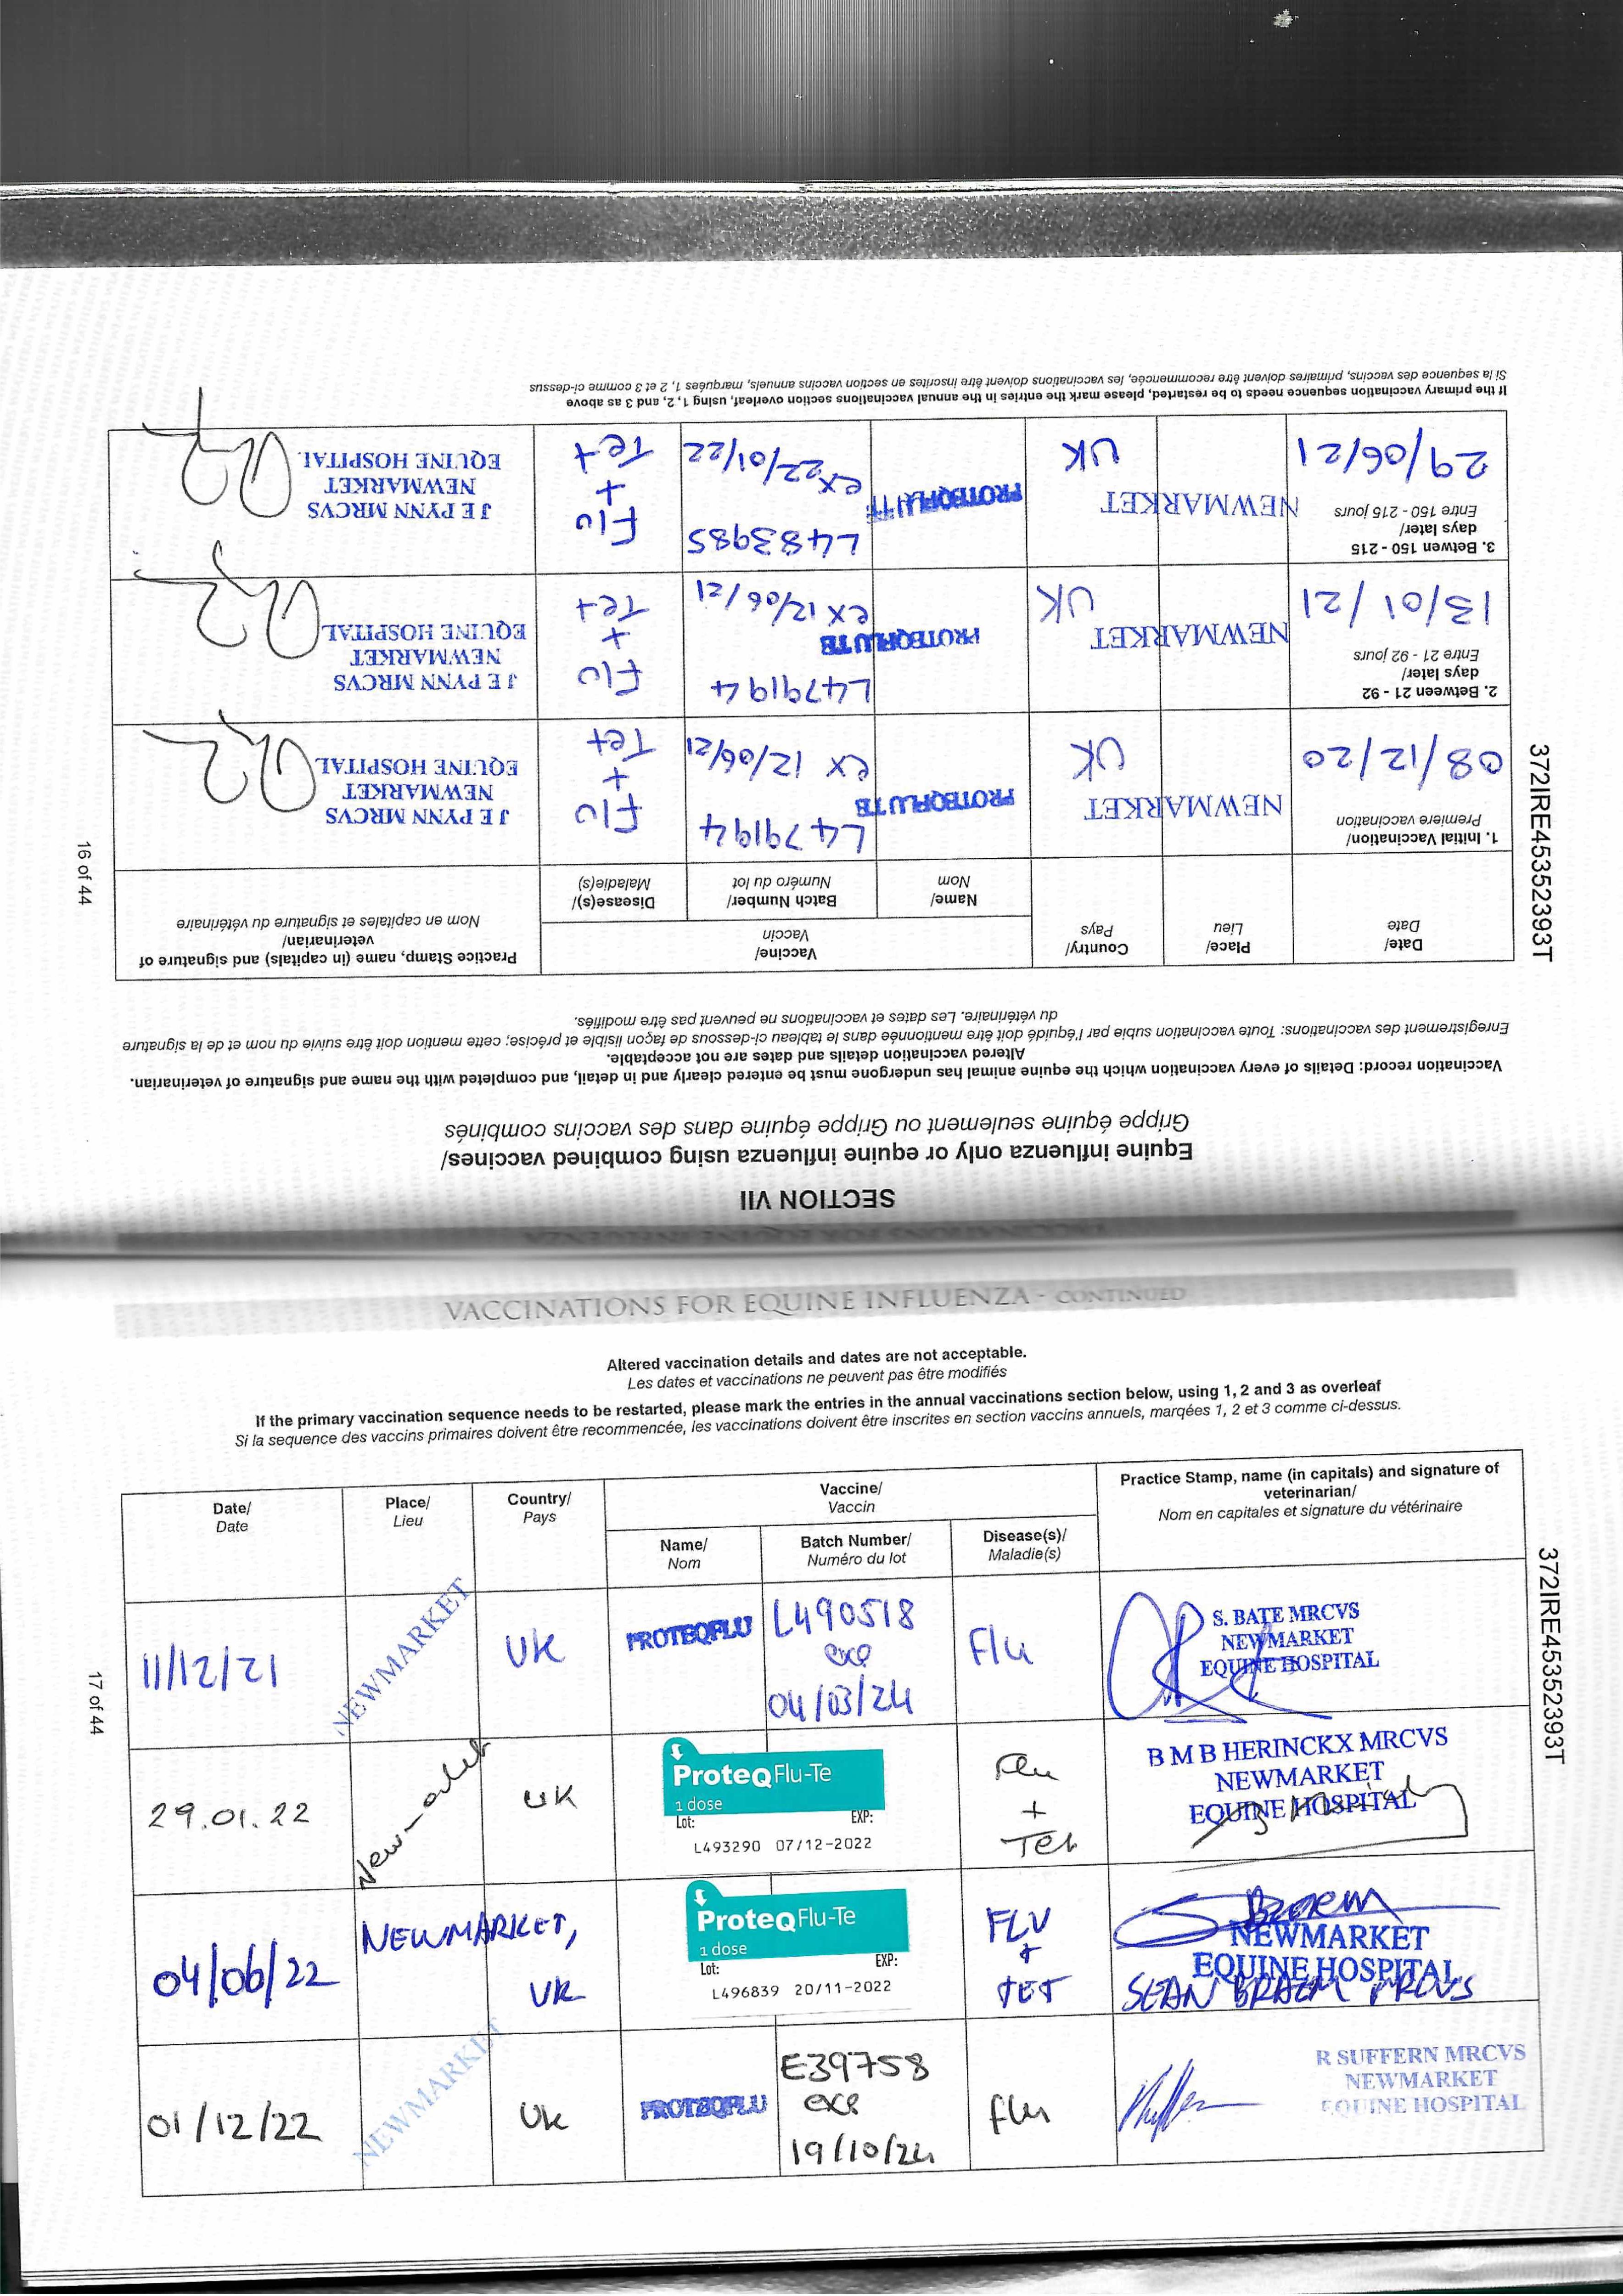 SECTION VII
Equine influenza only or equine influenza using combined vaccines/
Grippe équine seulement ou Grippe équine dans des vaccins combinés
Vaccination record: Details of every vaccination which the equine animal has undergone must be entered clearly and in detail, and completed with the name and signature of veterinarian.
Altered vaccination details and dates are not acceptable.
Enregistrement des vaccinations: Toute vaccination subie par l'équidé doit être mentionnée dans le tableau ci-dessous de façon lisible et précise; cette mention doit être suivie du nom et de la signature
du vétérinaire. Les dates et vaccinations ne peuvent pas être modifiés.
Date/
Date
Place/
Lieu
Country/
Pays
Vaccine/
Vaccin
Name/
Nom
Batch Number/
Numéro du lot
Disease(s)/
Maladie(s)
Practice Stamp, name (in capitals) and signature of
veterinarian/
Nom en capitales et signature du vétérinaire
1. Initial Vaccination/
Premiere vaccination
08/12/20
NEWMARKET
UK
PROTEQFLU TE
L479194
ex 12/06/21
Flu
+
Tet
J E PYNN MRCVS
NEWMARKET
EQUINE HOSPITAL
2. Between 21 - 92
days later/
Entre 21 - 92 jours
13/01/21
NEWMARKET
UK
PROTEQFLU TE
L479194
ex 12/06/21
Flu
+
Tet
J E PYNN MRCVS
NEWMARKET
EQUINE HOSPITAL
3. Betwen 150 - 215
days later/
Entre 150 - 215 jours
29/06/21
NEWMARKET
UK
PROTEQFLU TE
L483985
ex 22/01/22
Flu
+
Tet
J E PYNN MRCVS
NEWMARKET
EQUINE HOSPITAL
If the primary vaccination sequence needs to be restarted, please mark the entries in the annual vaccinations section overleaf, using 1, 2, and 3 as above
Si la sequence des vaccins, primaires doivent être recommencée, les vaccinations doivent être inscrites en section vaccins annuels, marquées 1, 2 et 3 comme ci-dessus
372IRE45352393T
16 of 44
VACCINATIONS FOR EQUINE INFLUENZA - CONTINUED
Altered vaccination details and dates are not acceptable.
Les dates et vaccinations ne peuvent pas être modifiés
If the primary vaccination sequence needs to be restarted, please mark the entries in the annual vaccinations section below, using 1, 2 and 3 as overleaf
Si la sequence des vaccins primaires doivent être recommencée, les vaccinations doivent être inscrites en section vaccins annuels, marqées 1, 2 et 3 comme ci-dessus.
Date/
Date
Place/
Lieu
Country/
Pays
Vaccine/
Vaccin
Name/
Nom
Batch Number/
Numéro du lot
Disease(s)/
Maladie(s)
Practice Stamp, name (in capitals) and signature of
veterinarian/
Nom en capitales et signature du vétérinaire
11/12/21
NEWMARKET
UK
PROTEQFLU
L490518
exp
04/03/24
Flu
S. BATE MRCVS
NEWMARKET
EQUINE HOSPITAL
29.01.22
Newmarket
UK
ProteQ Flu-Te
1 dose
Lot: EXP:
L493290 07/12-2022
Flu
+
Tet
B M B HERINCKX MRCVS
NEWMARKET
EQUINE HOSPITAL
04/06/22
NEWMARKET,
UK
ProteQ Flu-Te
1 dose
Lot: EXP:
L496839 20/11-2022
FLU
+
TET
NEWMARKET
EQUINE HOSPITAL
SEAN MRCVS
01/12/22
NEWMARKET
UK
PROTEQFLU
E39758
exp
19/10/24
flu
R SUFFERN MRCVS
NEWMARKET
EQUINE HOSPITAL
372IRE45352393T
17 of 44